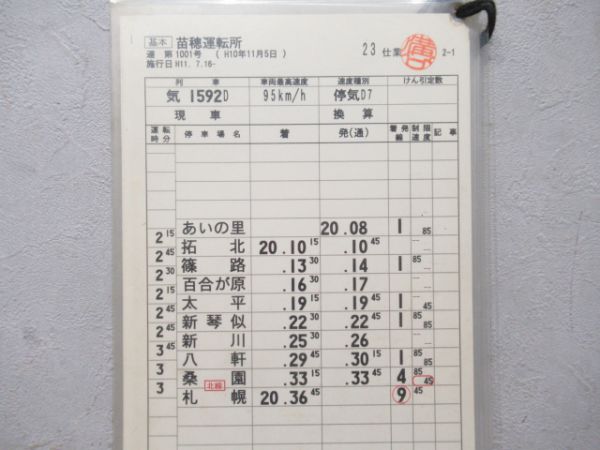 基本 苗穂運転所
運 第 1001号 ( H10年11月5日 )
施行日 H11. 7.16-
23 仕業 2-1
列車 車両最高速度 速度種別 けん引定数
気 1592D 95km/h 停気D7
現車 換算
運転時分 停車場名 着 発(通) 着発線 制限速度 記事
あいの里 20.08 1 85
2 15
拓北 20.10 15 .10 45
2 45
篠路 .13 30 .14 1 85
2 30
百合が原 .16 30 .17
2 15
太平 .19 15 .19 45 1 45
2 45
新琴似 .22 30 .22 45 1 85 85
2 45
新川 .25 30 .26
3 45
八軒 .29 45 .30 15 1 85 85
3
桑園 .33 15 .33 45 4 85 45
3 北線
札幌 20.36 45 9 45